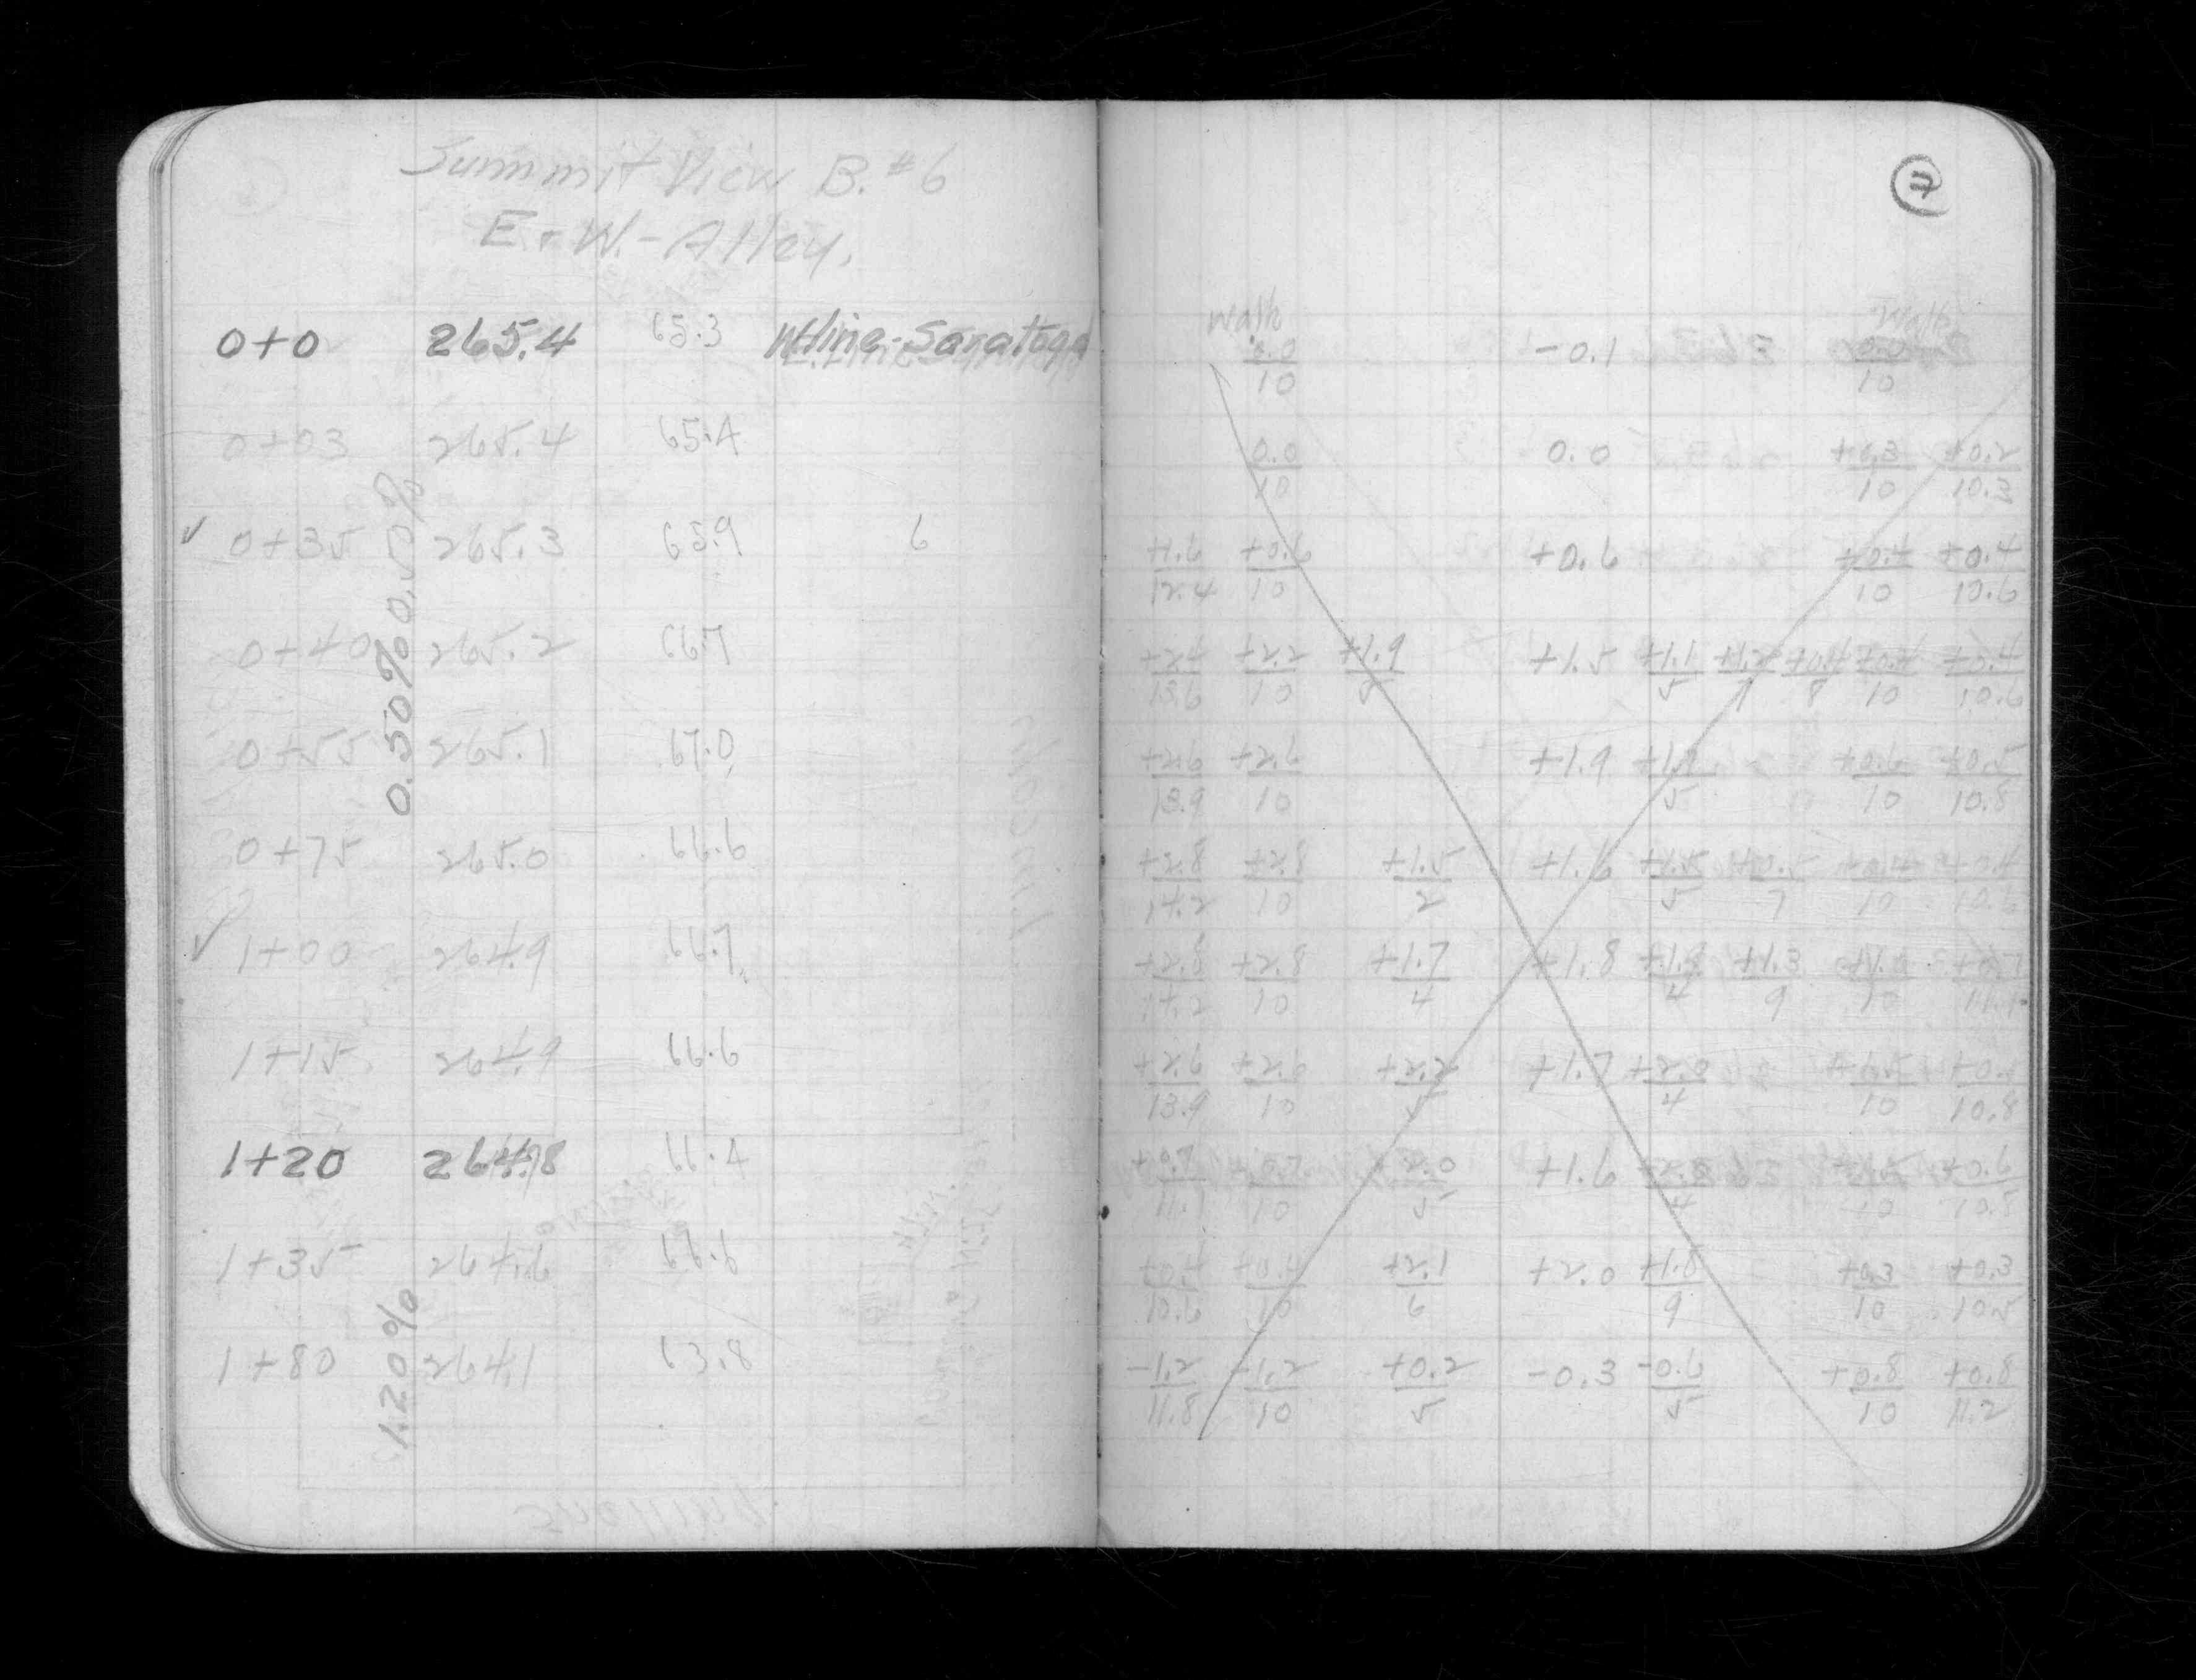 Summit View B. #6
E. + W. - Alley.
0+0 265.4 65.3 W. line - Saratoga
0+03 265.4 65.4
✓ 0+35 265.3 65.9 6
0+40 265.2 66.7
0+55 265.1 67.0
0+75 265.0 66.6
✓ 1+00 264.9 66.7
1+15 264.9 66.6
1+20 264.8 66.4
1+35 264.6 66.6
1+80 264.1 63.8
0.50% 0.50%
1.20%
7
Walk Walk
0.0/10 -0.1 0.0/10
0.0/10 0.0 +0.3/10 +0.2/10.3
+1.6/12.4 +0.6/10 +0.6 +0.4/10 +0.4/10.6
+2.4/13.6 +2.2/10 +1.9/5 +1.5 +1.1/5 +1.2/7 +0.4/8 +0.4/10 +0.4/10.6
+2.6/13.9 +2.6/10 +1.9 +1.9/5 +0.6/10 +0.5/10.8
+2.8/14.2 +2.8/10 +1.5/2 +1.6 +1.5/5 +0.5/7 +0.4/10 +0.4/10.6
+2.8/14.2 +2.8/10 +1.7/4 +1.8 +1.9/4 +1.3/9 +1.0/10 +0.7/11.1
+2.6/13.9 +2.6/10 +2.2/5 +1.7 +2.0/4 +1.5/10 10.8
+0.7/11.1 +0.7/10 +2.0/5 +1.6 +1.5/10 +0.6
+0.4/10.6 +0.4/10 +2.1/6 +2.0 +1.8/9 +0.3/10 +0.3/10.5
-1.2/11.8 -1.2/10 +0.2/5 -0.3 -0.6/5 +0.8/10 +0.8/11.2